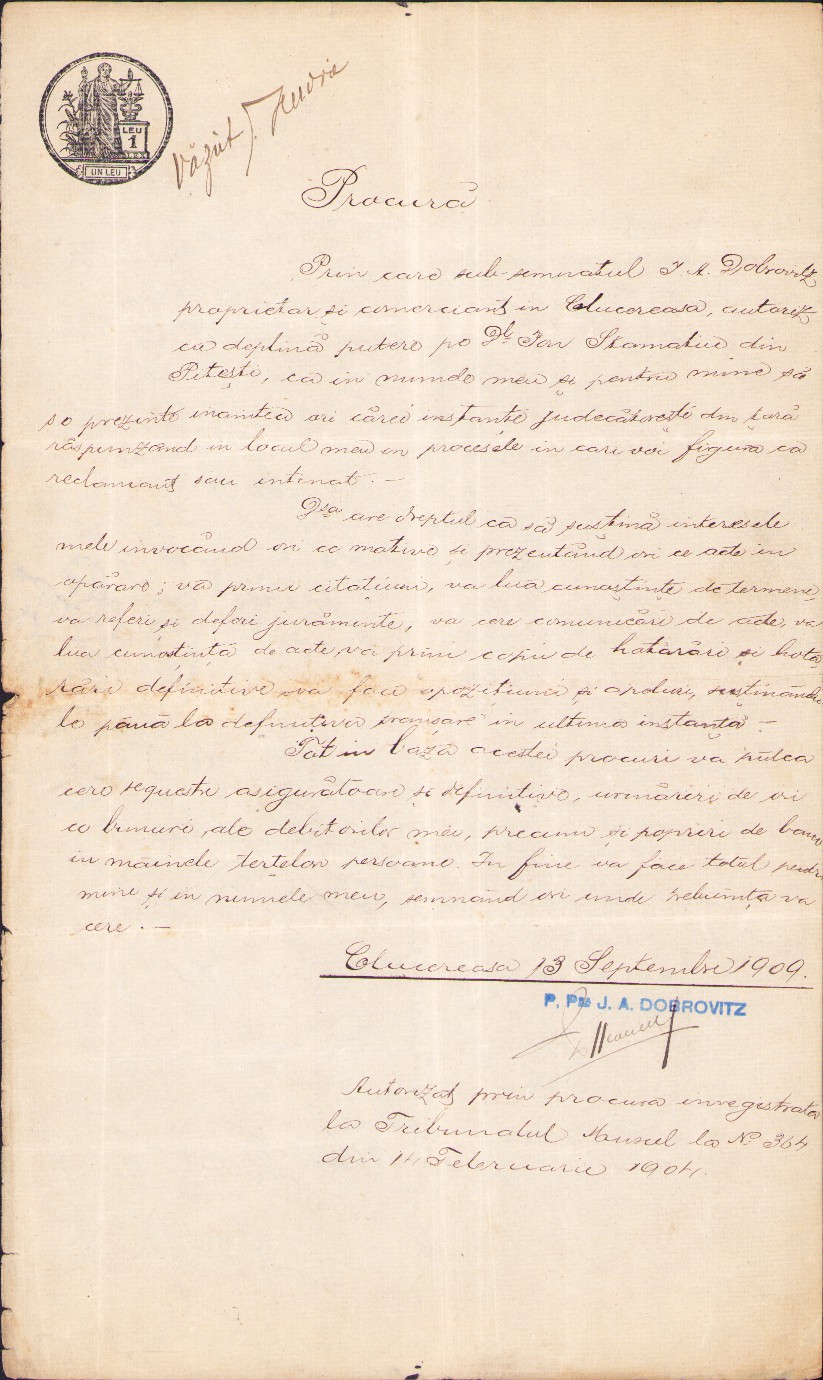 LEU
1
UN LEU
Văzut
Procură
Prin care sub-semnatul I. A. Dobrovitz
proprietar și comerciant in Clucereasa, autoriz
cu deplină putere pe Dl Ion Stamatiu din
Pitești, ca in numele meu și pentru mine să
se prezinte inaintea ori cărei instanțe judecătorești din țară
răspunzând in locul meu in procesele in cari voi figura ca
reclamant sau intimat. —
Dsa are dreptul ca să susțină interesele
mele invocând ori ce motive și prezentând ori ce acte in
apărare; va primi citațiuni, va lua cunoștințe de termene,
va referi și deferi jurăminte, va cere comunicări de acte, va
lua cunoștință de acte, va primi copii de hotărâri și hotă
râri definitive, va face opozițiuni și apeluri, susținându
le până la definitiva pronunțare in ultima instanță —
Tot in baza acestei procuri va putea
cere sequestre asigurătoare și definitive, urmăriri de ori
ce bunuri ale debitorilor mei, precum și popriri de bani
in mâinele terțelor persoane. In fine va face totul pentru
mine și in numele meu, semnând ori unde trebuința va
cere. —
Clucereasa 13 Septembrie 1909.
P. Pa J. A. DOBROVITZ
Autorizat prin procura inregistrata
la Tribunalul Muscel la No 364
din 14 Februarie 1904.